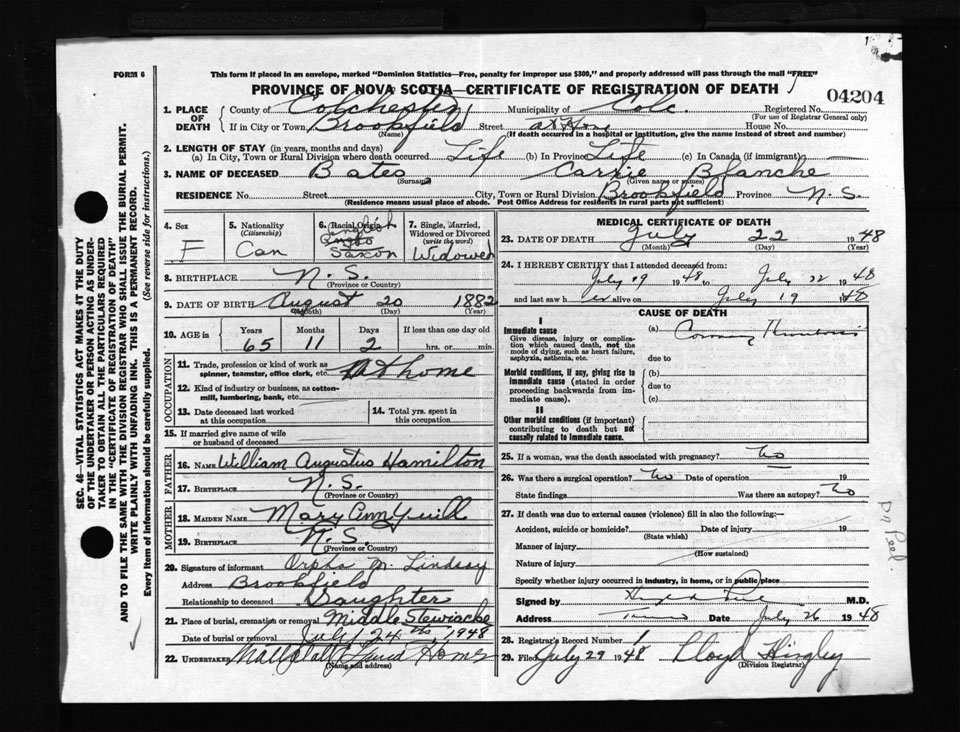 FORM 6
This form if placed in an envelope, marked "Dominion Statistics—Free, penalty for improper use $300," and properly addressed will pass through the mail "FREE"
PROVINCE OF NOVA SCOTIA—CERTIFICATE OF REGISTRATION OF DEATH
04204
1. PLACE OF DEATH
County of Colchester Municipality of Colc. Registered No.
(For use of Registrar General only)
If in City or Town Brookfield Street at Home House No.
(Name) (If death occurred in a hospital or institution, give the name instead of street and number)
2. LENGTH OF STAY (in years, months and days)
(a) In City, Town or Rural Division where death occurred Life (b) In Province Life (c) In Canada (if immigrant)
3. NAME OF DECEASED Bates Carrie Blanche
(Surname) (Given name or names)
RESIDENCE No. Street City, Town or Rural Division Brookfield Province N.S.
(Residence means usual place of abode. Post Office Address for residents in rural parts not sufficient)
4. Sex
F
5. Nationality
(Citizenship)
Can
6. Racial Origin
English
Anglo
Saxon
7. Single, Married, Widowed or Divorced
(write the word)
Widowed
8. BIRTHPLACE N.S.
(Province or Country)
9. DATE OF BIRTH August 20 1882
(Month) (Day) (Year)
10. AGE in Years Months Days If less than one day old
65 11 2 hrs. or min.
OCCUPATION
11. Trade, profession or kind of work as spinner, teamster, office clerk, etc. At home
12. Kind of industry or business, as cotton-mill, lumbering, bank, etc.
13. Date deceased last worked at this occupation
14. Total yrs. spent in this occupation
15. If married give name of wife or husband of deceased
FATHER
16. NAME William Augustus Hamilton
17. BIRTHPLACE N.S.
(Province or Country)
MOTHER
18. MAIDEN NAME Mary Ann Yuill
19. BIRTHPLACE N.S.
(Province or Country)
20. Signature of informant Orpha M. Lindsay
Address Brookfield
Relationship to deceased Daughter
21. Place of burial, cremation or removal Middle Stewiacke
Date of burial or removal July 24th, 1948
22. UNDERTAKER
(Name and address)
MEDICAL CERTIFICATE OF DEATH
23. DATE OF DEATH July 22 1948
(Month) (Day) (Year)
24. I HEREBY CERTIFY that I attended deceased from:
July 19 1948 to July 22 1948
and last saw her alive on July 19 1948
CAUSE OF DEATH
I
Immediate cause
Give disease, injury or complication which caused death, not the mode of dying, such as heart failure, asphyxia, asthenia, etc.
(a) Coronary Thrombosis
due to
Morbid conditions, if any, giving rise to immediate cause (stated in order proceeding backwards from immediate cause).
(b)
due to
(c)
II
Other morbid conditions (if important) contributing to death but not causally related to immediate cause.
25. If a woman, was the death associated with pregnancy? No
26. Was there a surgical operation? No Date of operation 19
State findings Was there an autopsy? No
27. If death was due to external causes (violence) fill in also the following:—
Accident, suicide or homicide? Date of injury 19
(State which)
Manner of injury
(How sustained)
Nature of injury
Specify whether injury occurred in industry, in home, or in public place
Signed by M.D.
Address Truro Date July 26 1948
28. Registrar's Record Number 1
29. Filed July 29 1948 Lloyd Hingley
(Division Registrar)
Dr Peel
SEC. 46—VITAL STATISTICS ACT MAKES IT THE DUTY
OF THE UNDERTAKER OR PERSON ACTING AS UNDER-
TAKER TO OBTAIN ALL THE PARTICULARS REQUIRED
IN THE "CERTIFICATE OF REGISTRATION OF DEATH"
AND TO FILE THE SAME WITH THE DIVISION REGISTRAR WHO SHALL ISSUE THE BURIAL PERMIT.
WRITE PLAINLY WITH UNFADING INK. THIS IS A PERMANENT RECORD.
Every item of information should be carefully supplied. (See reverse side for instructions.)